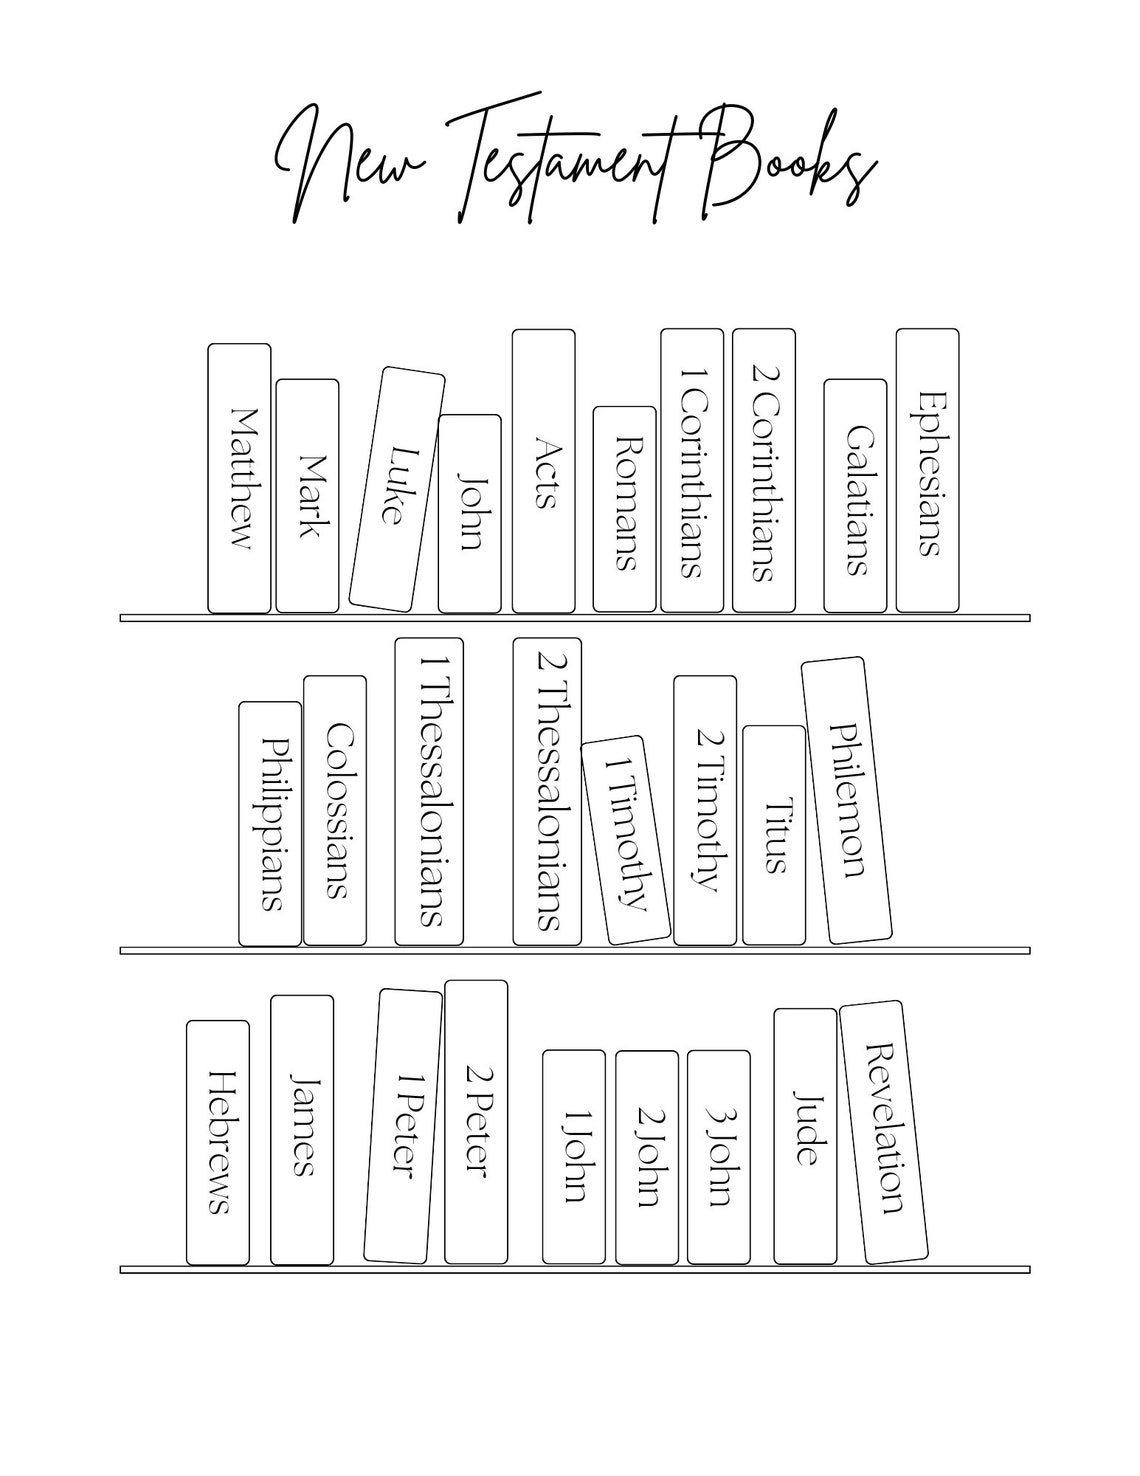 New Testament Books
Matthew
Mark
Luke
John
Acts
Romans
1 Corinthians
2 Corinthians
Galatians
Ephesians
Philippians
Colossians
1 Thessalonians
2 Thessalonians
1 Timothy
2 Timothy
Titus
Philemon
Hebrews
James
1 Peter
2 Peter
1 John
2 John
3 John
Jude
Revelation